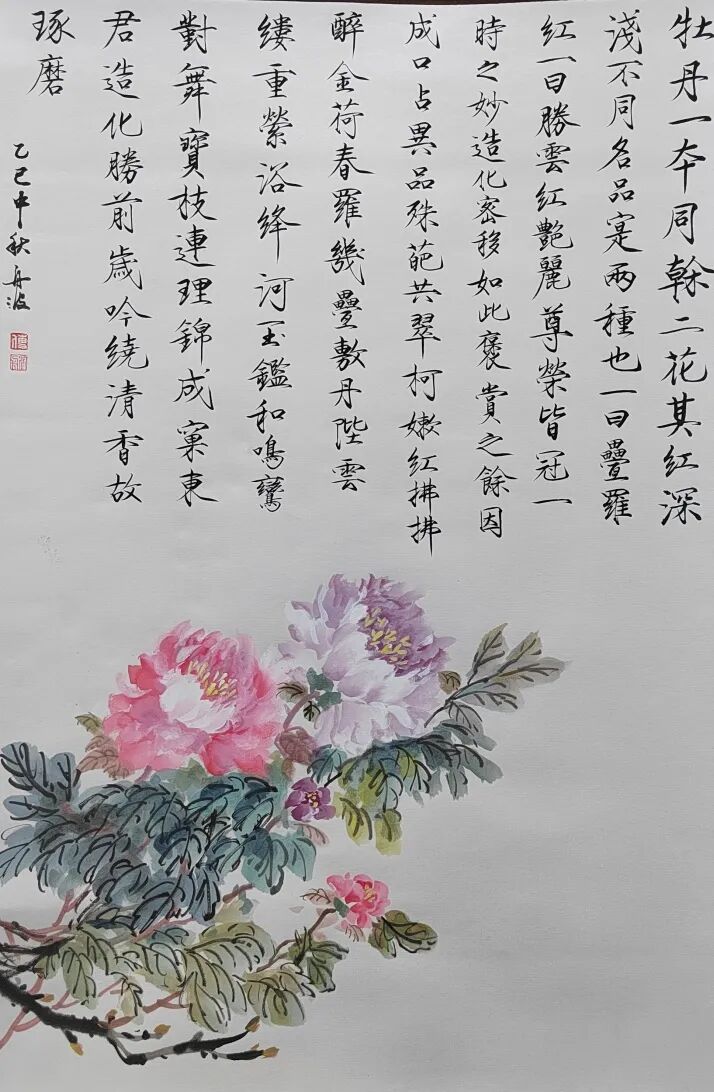 牡丹一本同榦二花其紅深
淺不同名品寔兩種也一曰疊羅
紅一曰勝雲紅艷麗尊榮皆冠一
時之妙造化密移如此褒賞之餘因
成口占異品殊葩共翠柯嫩紅拂拂
醉金荷春羅幾疊敷丹陛雲
縷重縈浴絳河玉鑑和鳴鸞
對舞寶枝連理錦成窠東
君造化勝前歲吟繞清香故
琢磨
乙巳中秋丹波